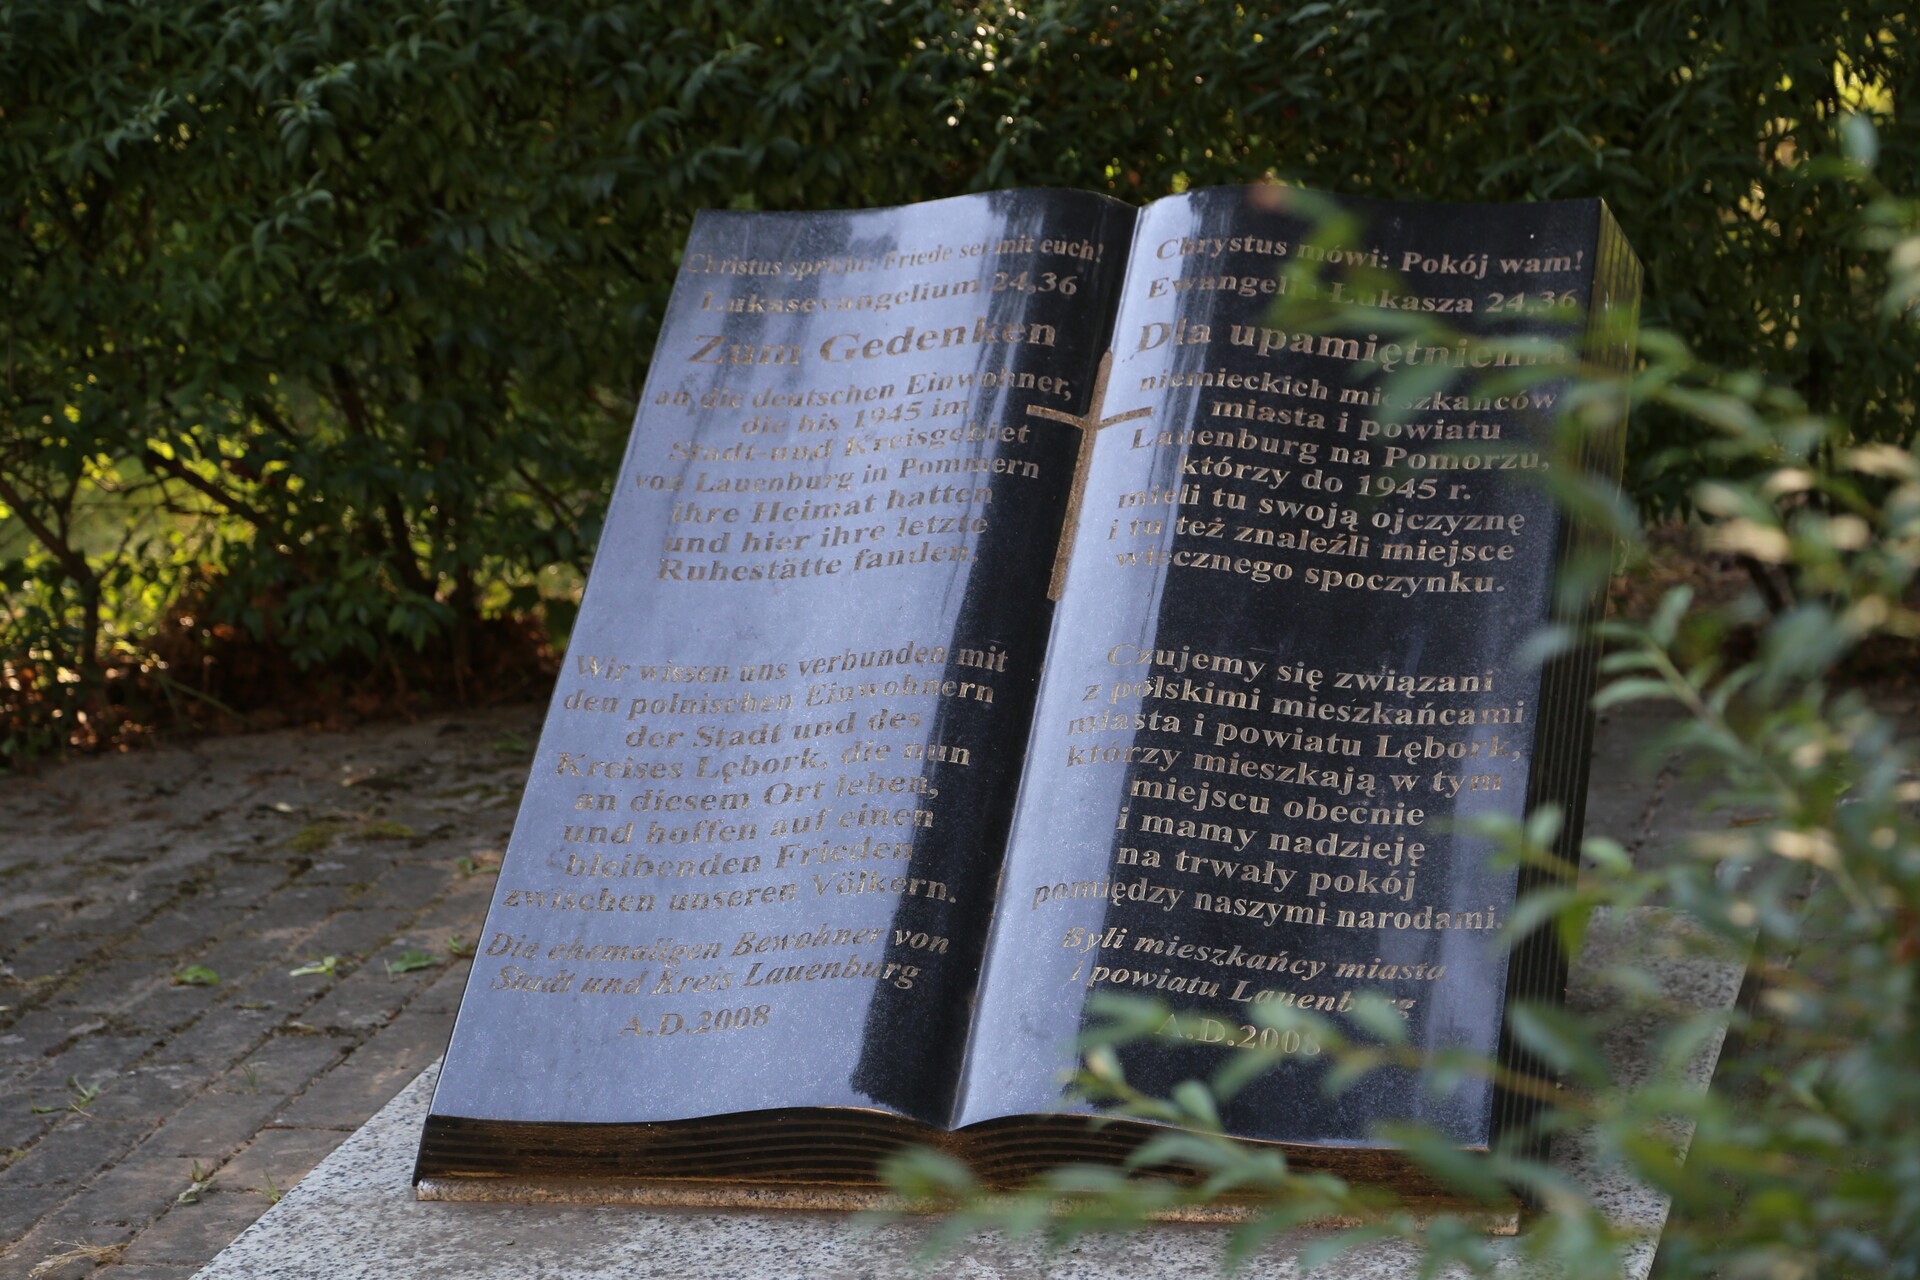 Christus spricht: Friede sei mit euch!
Lukasevangelium 24,36
Zum Gedenken
an die deutschen Einwohner,
die bis 1945 im
Stadt-und Kreisgebiet
von Lauenburg in Pommern
ihre Heimat hatten
und hier ihre letzte
Ruhestätte fanden.
Wir wissen uns verbunden mit
den polnischen Einwohnern
der Stadt und des
Kreises Lębork, die nun
an diesem Ort leben,
und hoffen auf einen
bleibenden Frieden
zwischen unseren Völkern.
Die ehemaligen Bewohner von
Stadt und Kreis Lauenburg
A.D.2008
Chrystus mówi: Pokój wam!
Ewangelia Łukasza 24,36
Dla upamiętnienia
niemieckich mieszkańców
miasta i powiatu
Lauenburg na Pomorzu,
którzy do 1945 r.
mieli tu swoją ojczyznę
i tu też znaleźli miejsce
wiecznego spoczynku.
Czujemy się związani
z polskimi mieszkańcami
miasta i powiatu Lębork,
którzy mieszkają w tym
miejscu obecnie
i mamy nadzieję
na trwały pokój
pomiędzy naszymi narodami.
Byli mieszkańcy miasta
i powiatu Lauenburg
A.D.2008